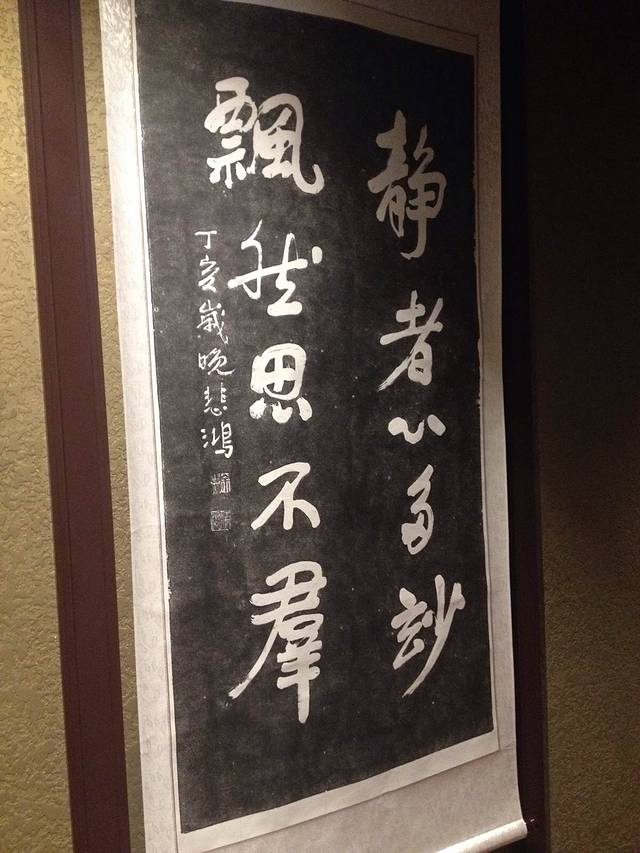 静者心多妙
飄然思不羣
丁亥歲晚悲鴻